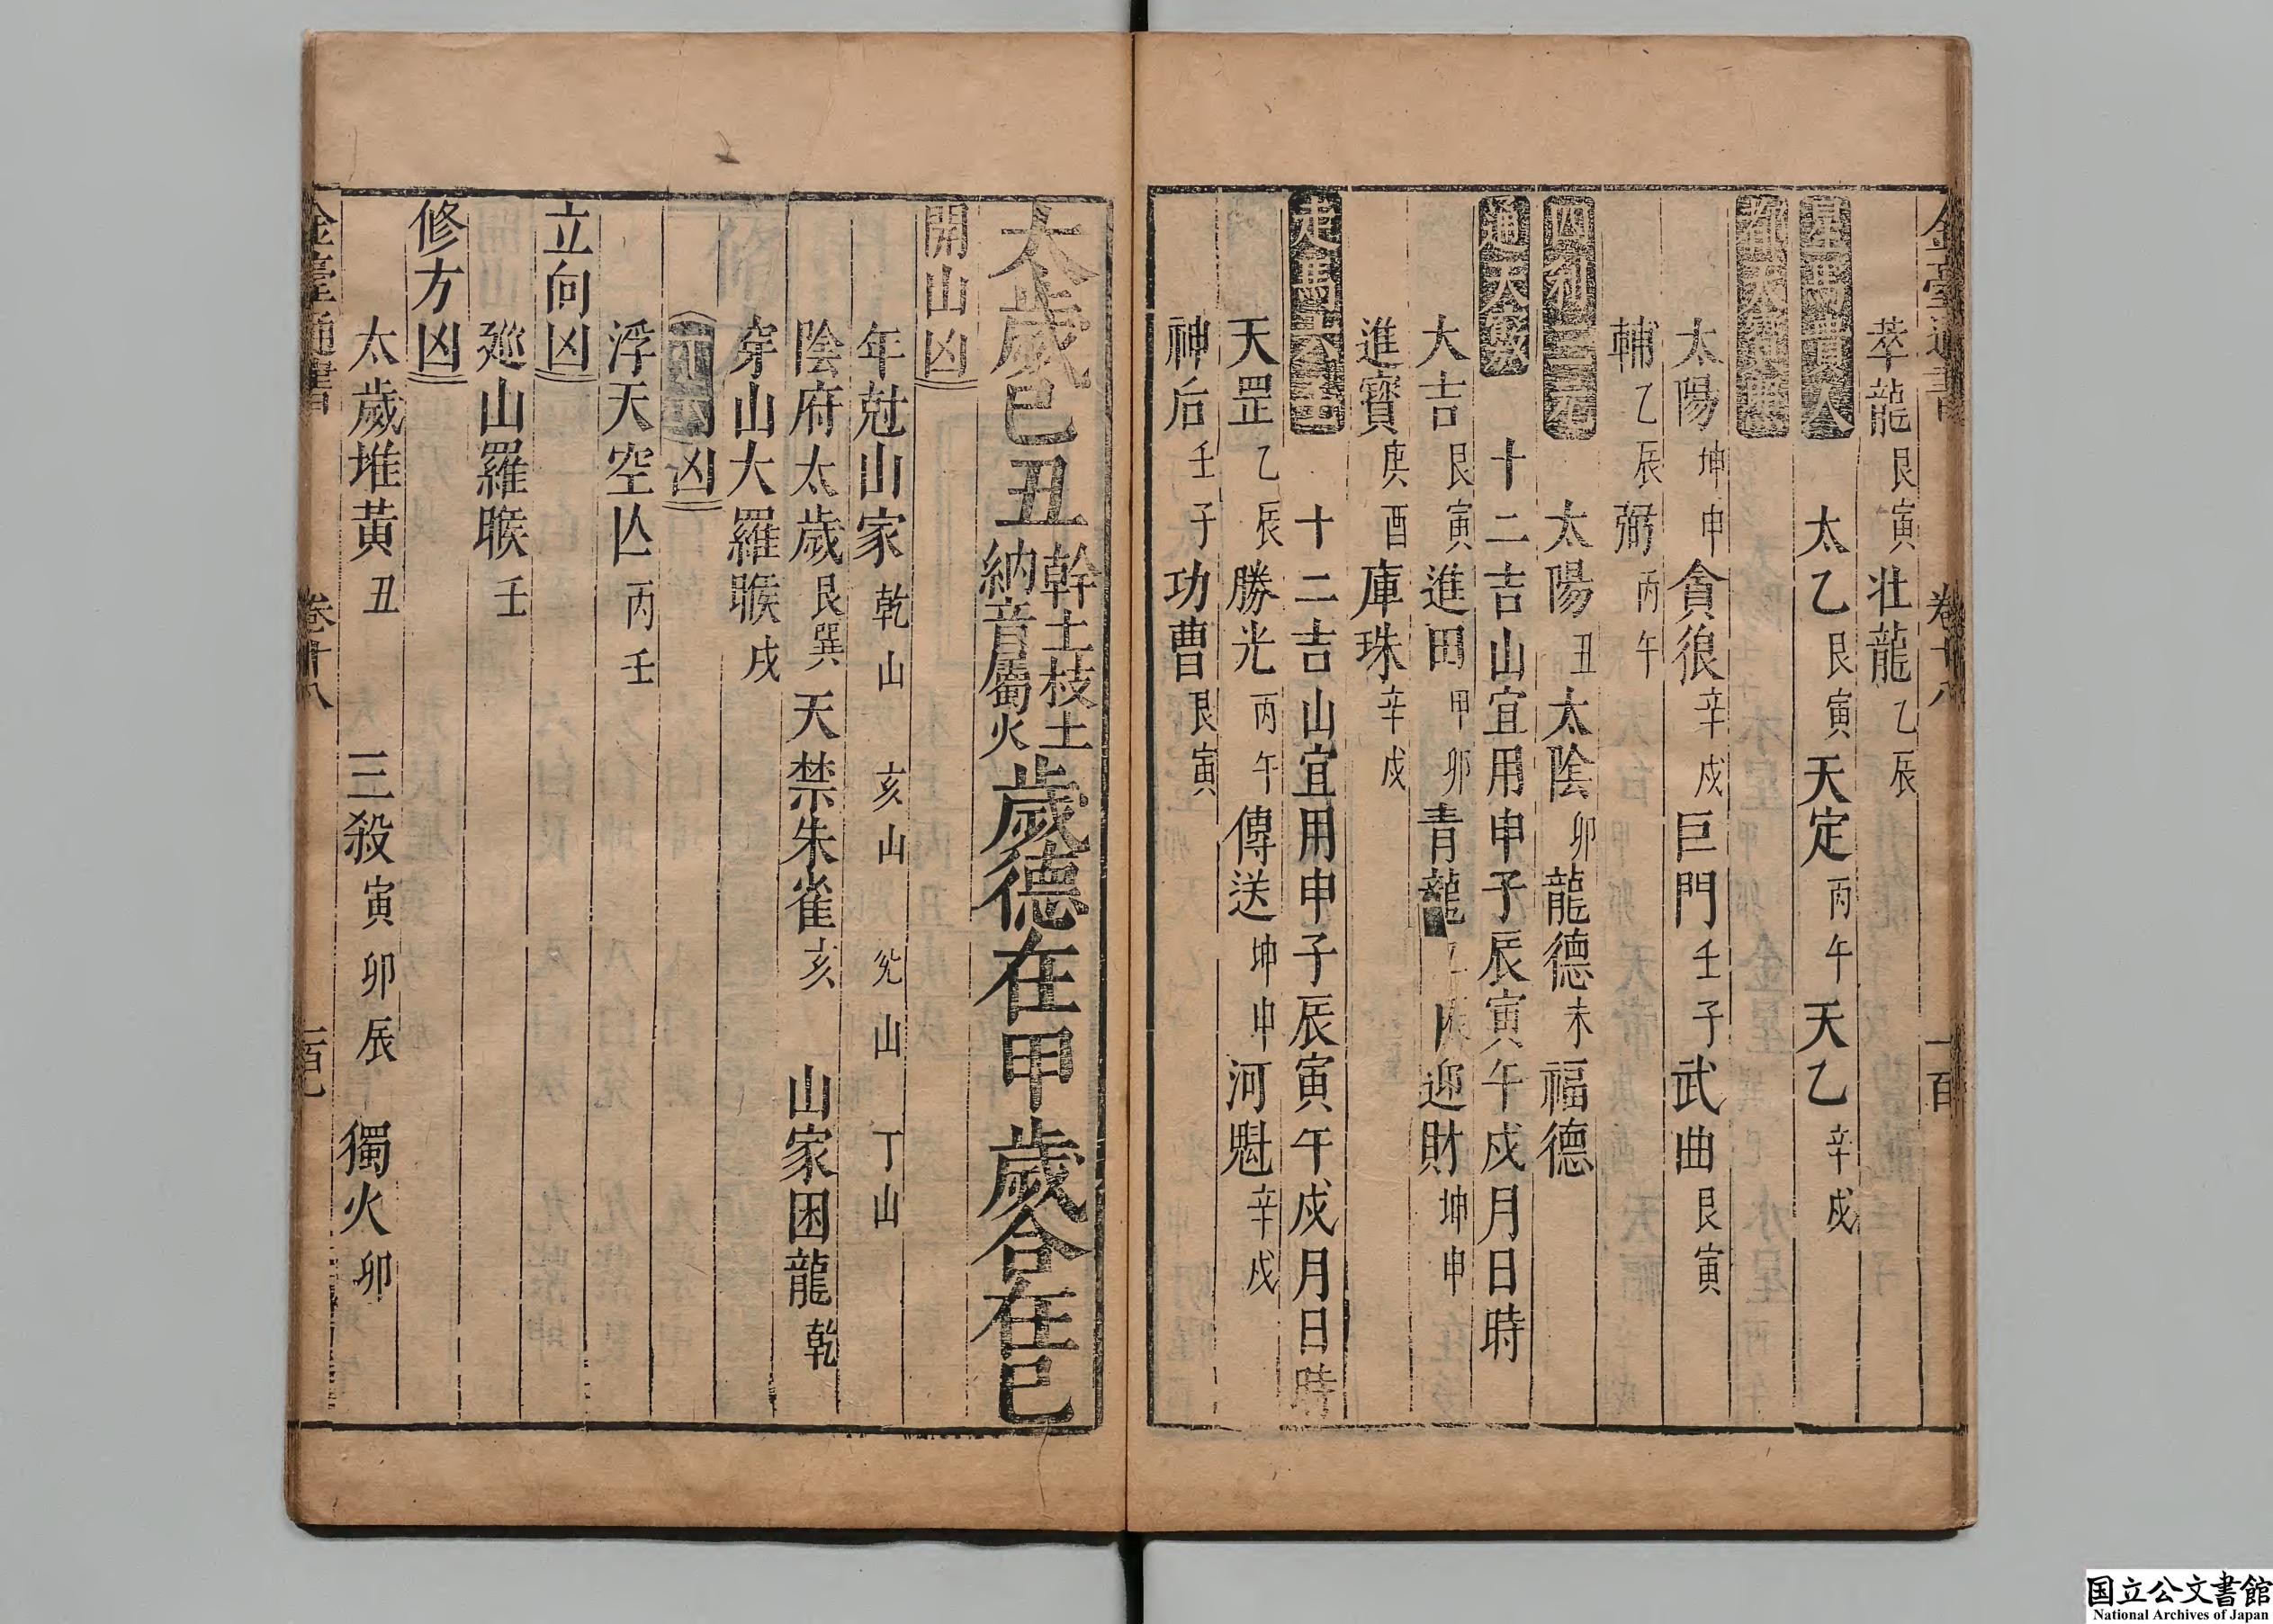 金臺通書 卷十八 一百
萃龍艮寅壮龍乙辰
星馬貴人 太乙艮寅天定丙午天乙辛戍
都天
太陽坤申貪狼辛戍巨門壬子武曲艮寅
輔乙辰弼丙午
四利三元 太陽丑太陰卯龍德未福德
通天竅 十二吉山宜用申子辰寅午戍月日時
大吉艮寅進田甲卯青龍乙辰迎財坤申
進寳庚酉庫珠辛戍
走馬六壬 十二吉山宜用申子辰寅午戍月日時
天罡乙辰勝光丙午傳送坤申河魁辛戍
神后壬子功曹艮寅
太歲己丑 幹土枝土 納音屬火 歲德在甲歲合在己
開山凶
年尅山家 乾山 亥山 兊山 丁山
陰府太歲艮巽 天禁朱雀亥 山家困龍乾
穿山大羅睺戍
凶
浮天空亾丙壬
立向凶
廵山羅睺壬
修方凶
太歲堆黃丑 三殺寅卯辰 獨火卯
金臺通書 卷十八